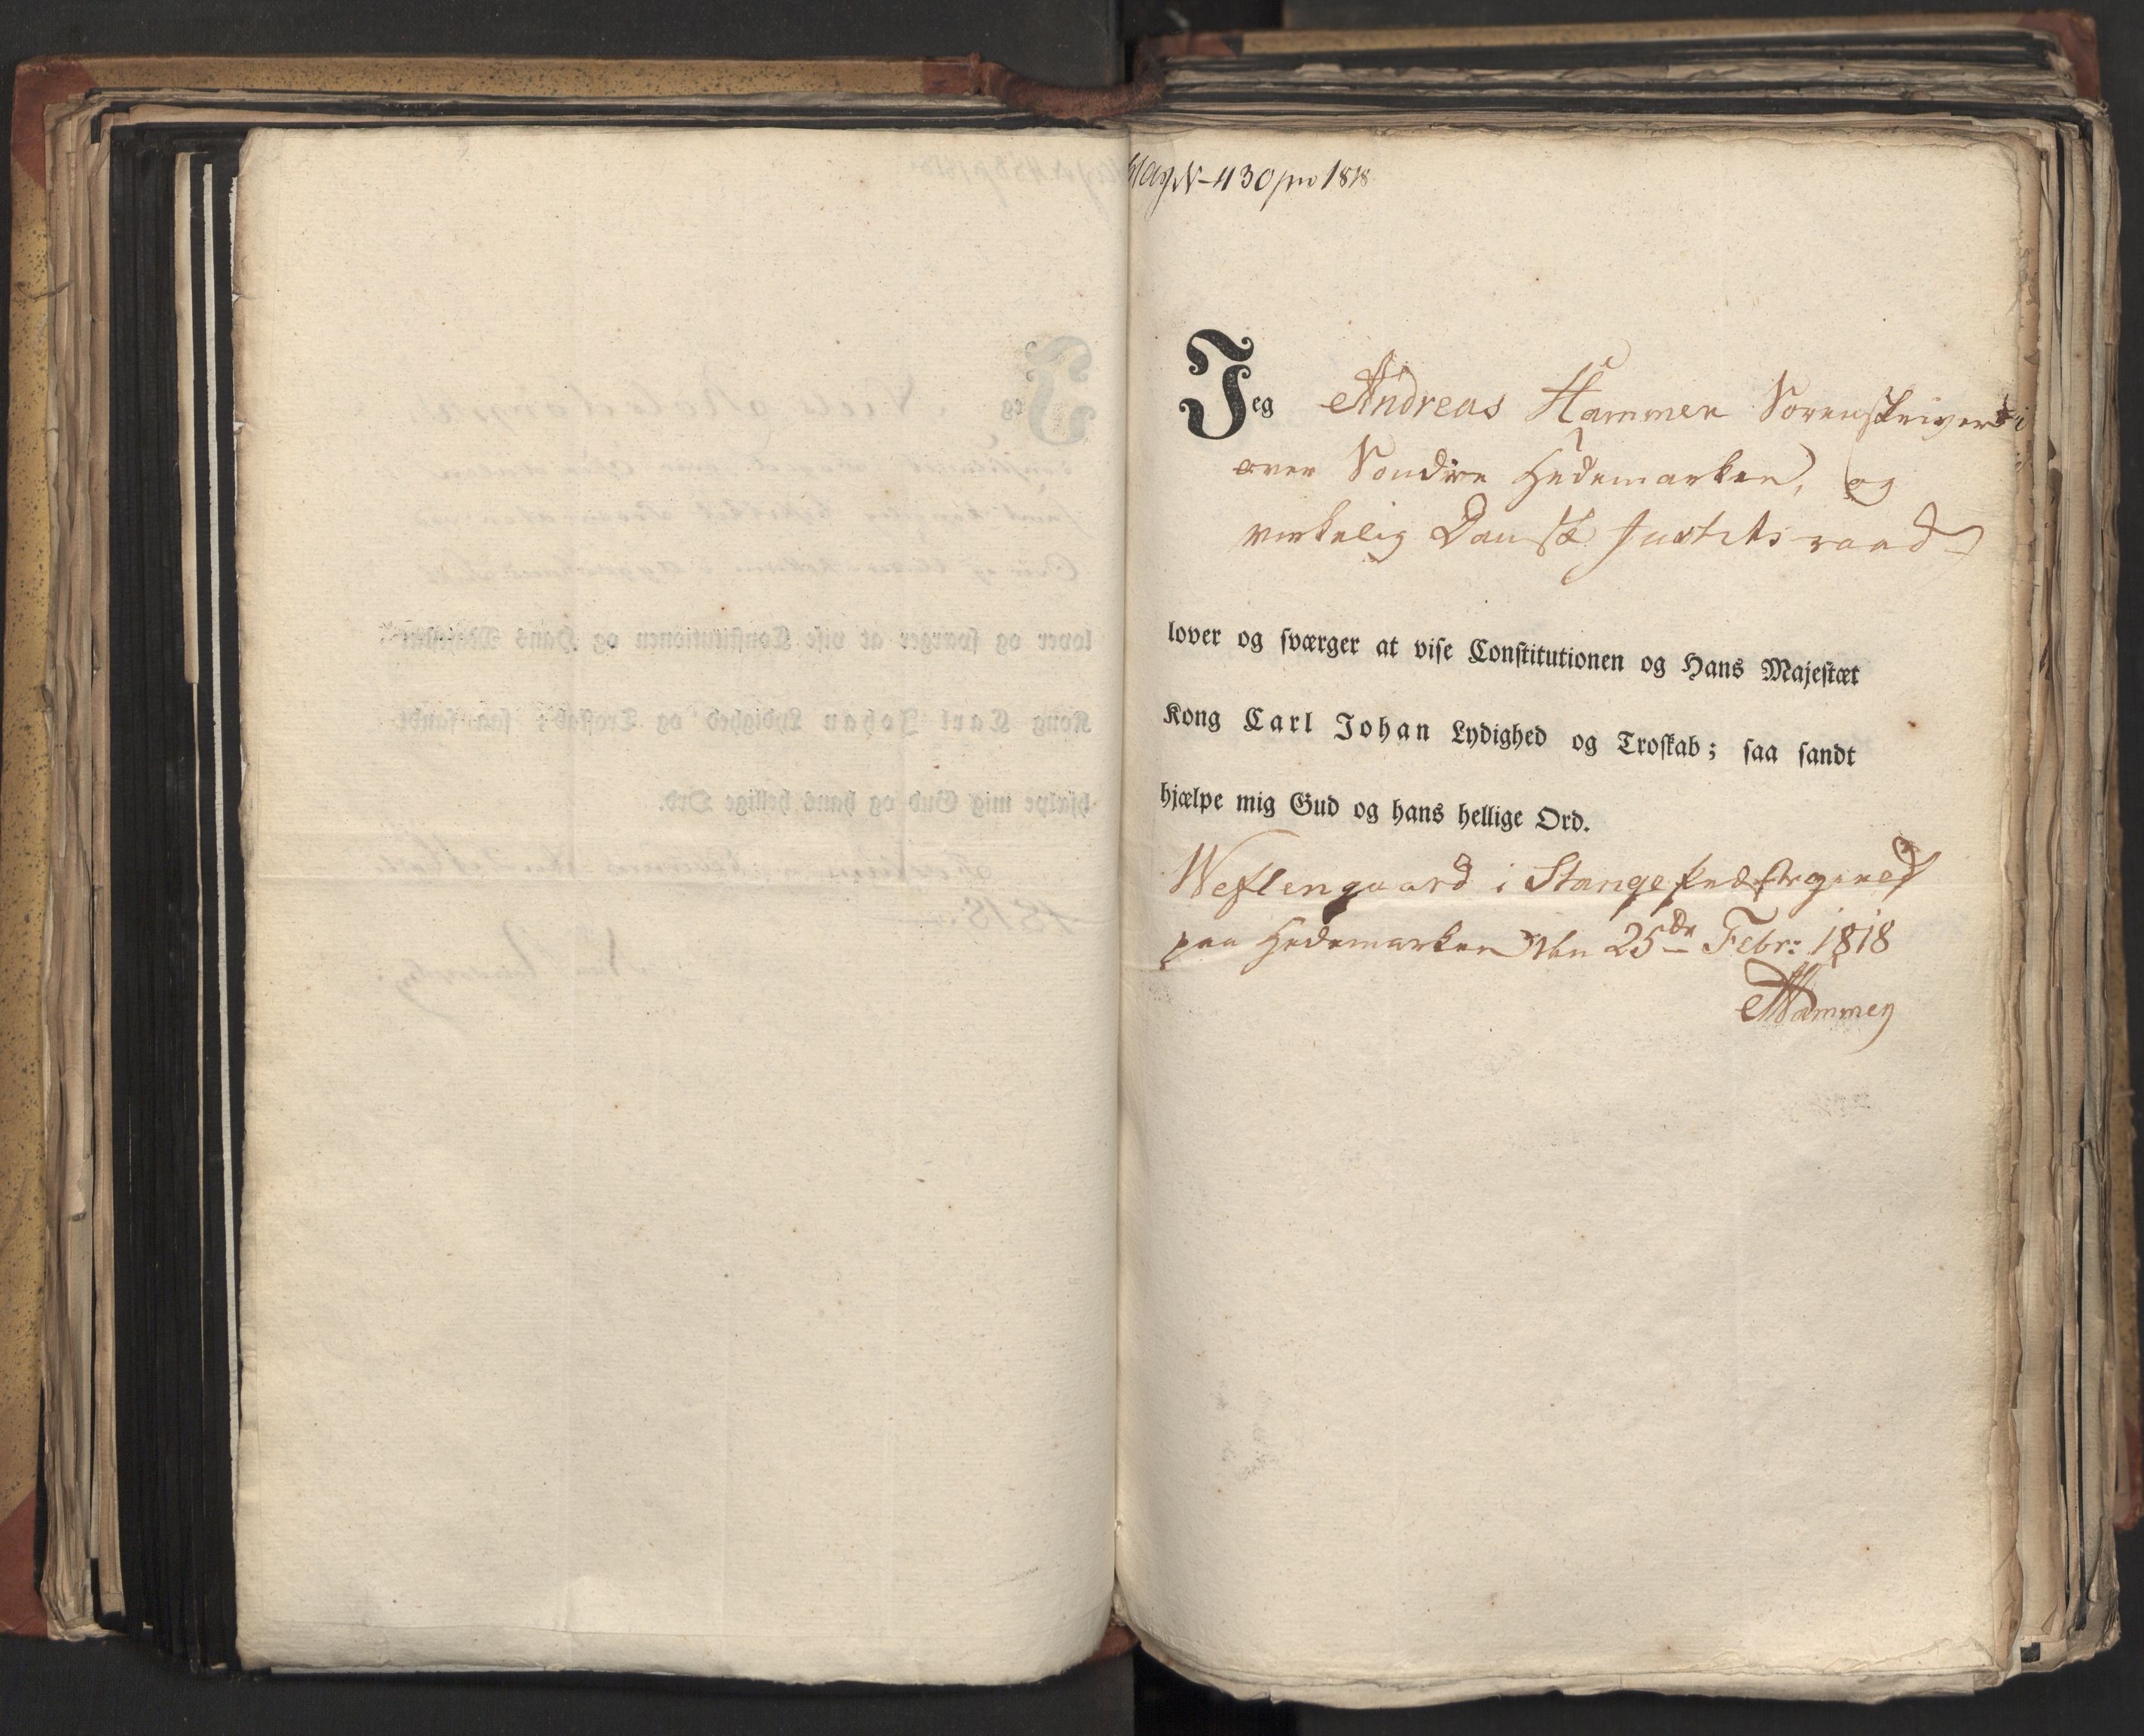 N– 430 pro 1818
Jeg Andreas Hammer Sorenskriver
over Søndre Hedemarken, og
virkelig Dansk Justitsraad
lover og sværger at vise Constitutionen og Hans Majestæt
Kong Carl Johan Lydighed og Troskab; saa sandt
hjælpe mig Gud og hans hellige Ord.
Weflengaard i Stange
paa Hedemarken den 25de Febr: 1818
AHammer